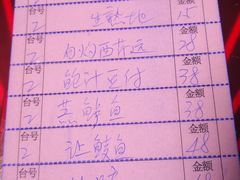 台号 2 生熟地 金额 15
台号 2 白灼西芹远 金额 28
台号 2 鲍汁豆付 金额 38
台号 2 蒸鲮鱼 金额 38
台号 2 让鲮鱼 金额 48
台号 金额